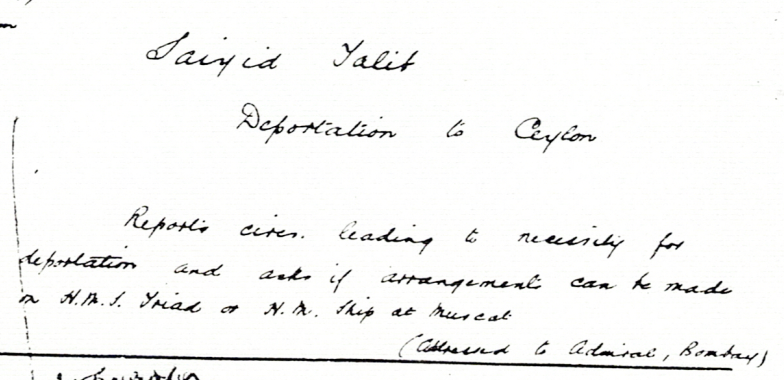 Saiyid Talib
Deportation to Ceylon
Reports circs. leading to necessity for
deportation and asks if arrangements can be made
on H.M.S. Triad or H.M. Ship at Muscat
(Addressed to Admiral, Bombay)